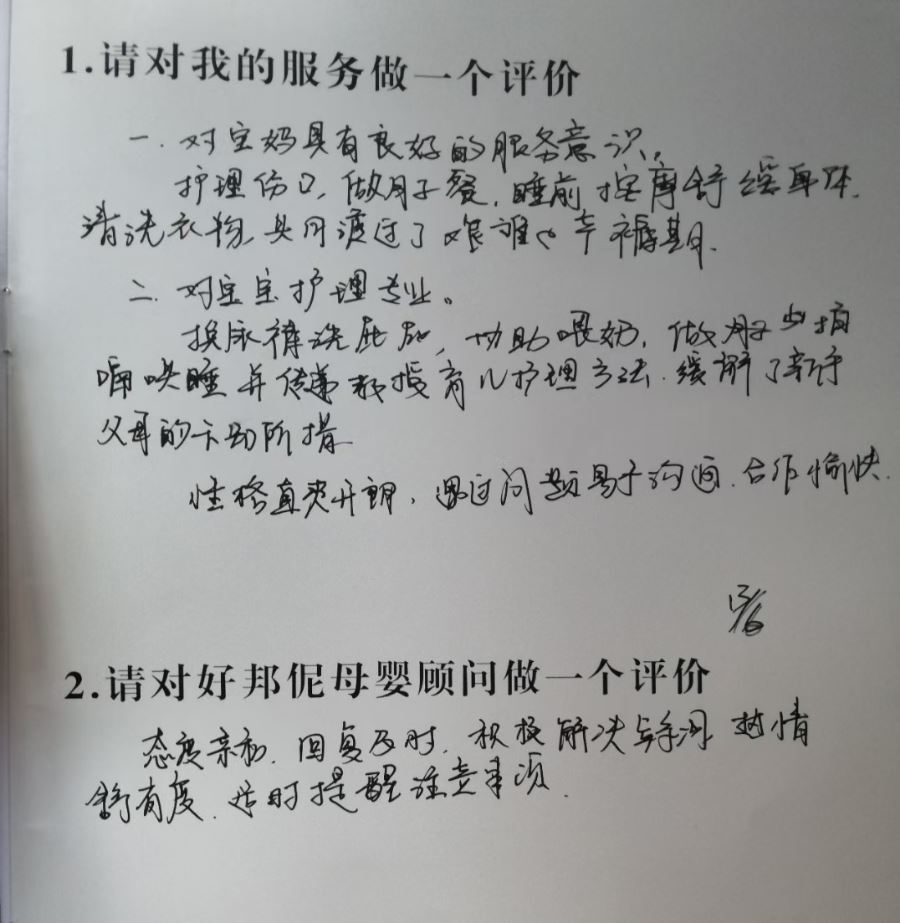 1.请对我的服务做一个评价
一.对宝妈具有良好的服务意识。
护理伤口,做月子餐,睡前按摩舒缓身体,
清洗衣物,共同渡过了艰难的产褥期.
二.对宝宝护理专业。
换尿裤洗屁屁,协助喂奶,做
哺哄睡并传递教授育儿护理方法.缓解了新手
父母的手足所措
性格直爽开朗,遇过问题易于沟通.合作愉快.
2.请对好邦伲母婴顾问做一个评价
态度亲和.回复及时.积极解决 热情
有度.适时提醒注意事项.